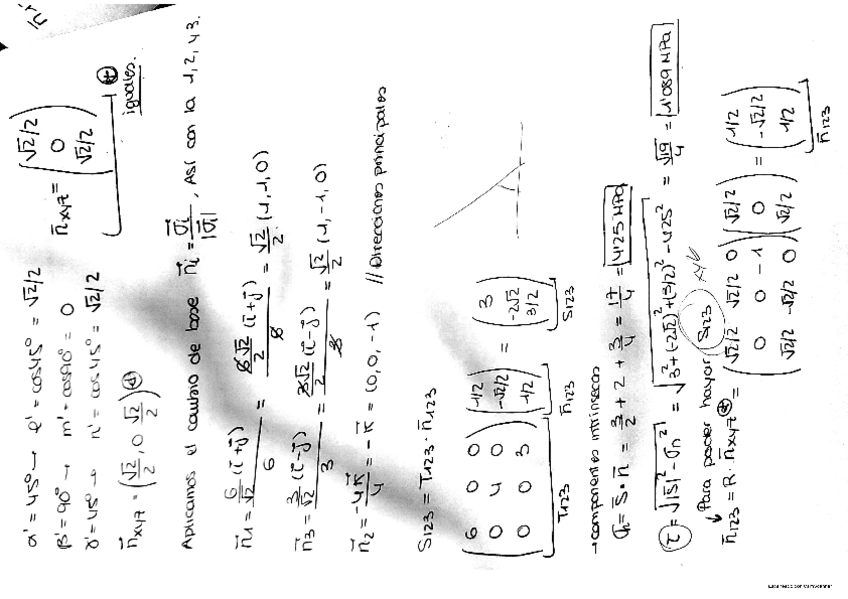 α' = 45° → l' = cos 45° = √2/2
β' = 90° → m' = cos 90° = 0
γ' = 45° → n' = cos 45° = √2/2
n̄xyz = (√2/2, 0, √2/2)
n̄xyz = (√2/2 0 √2/2)
iguales.
Aplicamos el cambio de base n̄i = σ̄i/|σ̄i|, Así con la 1, 2, y 3.
n̄1 = 6/√2 (ī+j̄) / 6 = 6√2/2 (ī+j̄) / 6 = √2/2 (1,1,0)
n̄3 = 3/√2 (ī-j̄) / 3 = 3√2/2 (ī-j̄) / 3 = √2/2 (1,-1,0)
n̄2 = -4k̄/4 = -k̄ = (0,0,-1) // Direcciones principales
S123 = T123 · n̄123
(6 0 0; 0 4 0; 0 0 3) (1/2 -√2/2 1/2) = (3 -2√2 3/2)
T123 n̄123 S123
→ componentes intrínsecas
σn = S̄ · n̄ = 3/2 + 2 + 3/4 = 17/4 = 4'25 MPa
τ = √|S̄|² - σn² = √3² + (-2√2)² + (3/2)² - 4'25² = √19/4 = 1'089 MPa
Para poder hayar S123
n̄123 = R · n̄xyz = (√2/2 √2/2 0; 0 0 -1; √2/2 -√2/2 0) (√2/2 0 √2/2) = (1/2 -√2/2 1/2)
n̄123